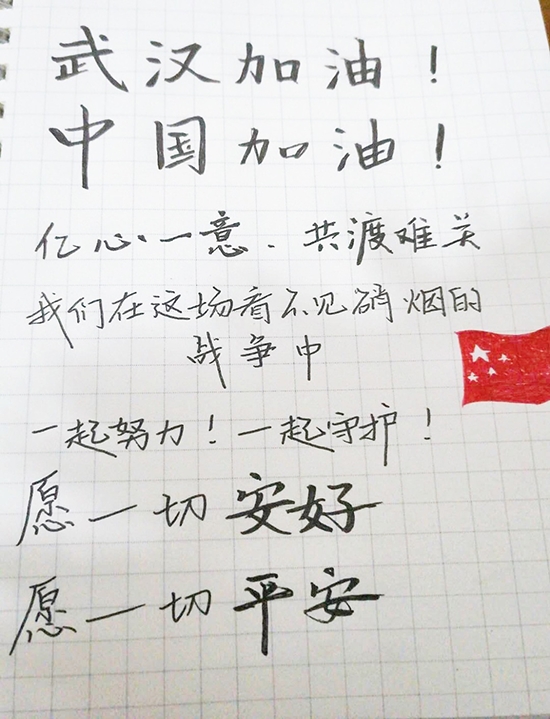 武汉加油!
中国加油!
亿心一意．共渡难关
我们在这场看不见硝烟的
战争中
一起努力!一起守护!
愿一切安好
愿一切平安